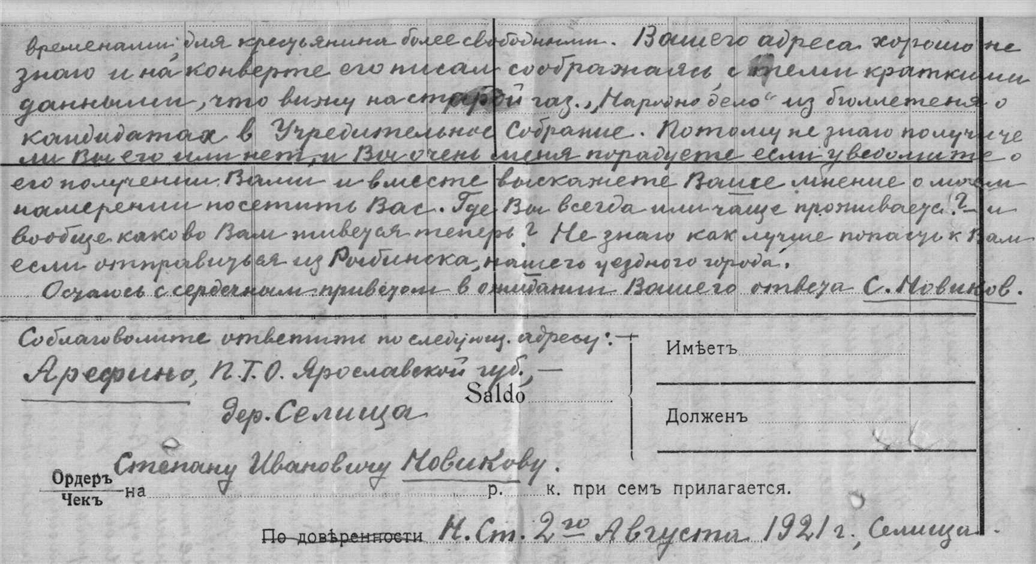 временами для крестьянина более свободными. Вашего адреса хорошо не
знаю и на конверте его писал сообразжаясь с теми краткими
данными, что вижу на старой газ. „Народно дело" из бюллетеня о
кандидатах в Учредительное Собрание. Потому не знаю получите
ли Вы его или нет, и Вы очень меня порадуете если уведомите о
его получении Вами и вместе выскажете Ваше мнение о моем
намерении посетить Вас. Где Вы всегда или чаще проживаете? – и
вообще каково Вам живется теперь? Не знаю как лучше попасть к Вам
если отправиться из Рыбинска, нашего уездного города.
Остаюсь с сердечным приветом в ожидании Вашего ответа С. Новиков.
Соблаговолите ответить по следующ. адресу:—
Арефино, П.Т.О. Ярославской губ., —
дер. Селища
Saldo
Имѣетъ
Долженъ
Степану Ивановичу Новикову.
Ордеръ
Чекъ на р. к. при семъ прилагается.
По довѣренности Н. Ст. 2го Августа 1921 г., Селища.